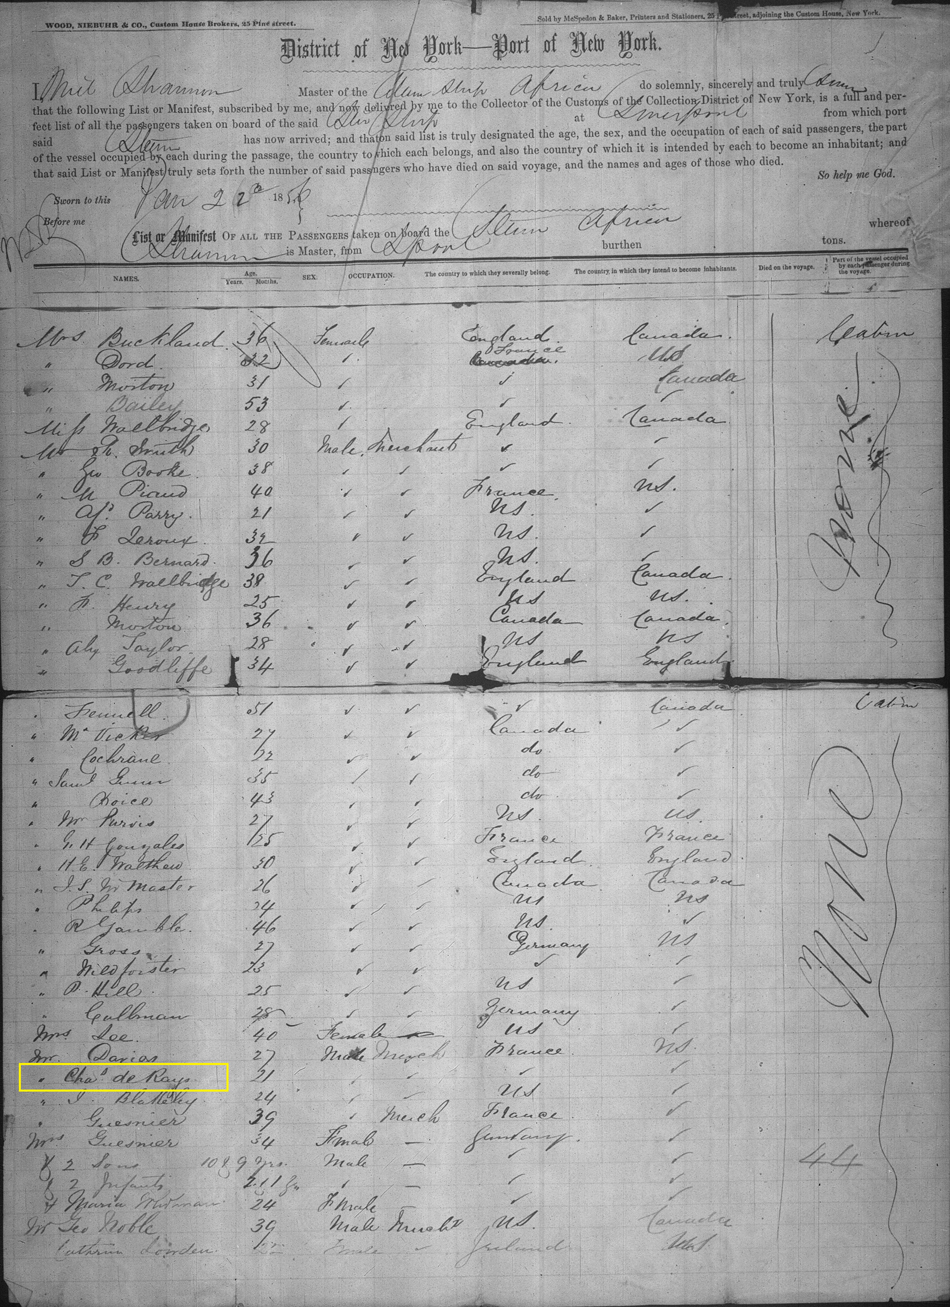 WOOD, NIEBUHR & CO., Custom House Brokers, 25 Pine street.
Sold by McSpedon & Baker, Printers and Stationers, 25 Pine street, adjoining the Custom House, New York.
District of New York—Port of New York.
I, Shannon Master of the Steam Ship Africa do solemnly, sincerely and truly
that the following List or Manifest, subscribed by me, and now delivered by me to the Collector of the Customs of the Collection District of New York, is a full and per-
fect list of all the passengers taken on board of the said Ship at Liverpool from which port
said Steam has now arrived; and that on said list is truly designated the age, the sex, and the occupation of each of said passengers, the part
of the vessel occupied by each during the passage, the country to which each belongs, and also the country of which it is intended by each to become an inhabitant; and
that said List or Manifest truly sets forth the number of said passengers who have died on said voyage, and the names and ages of those who died.
So help me God.
Sworn to this Jan 22d 1856
Before me
List or Manifest OF ALL THE PASSENGERS taken on board the Steam Africa whereof
Shannon is Master, from Lpool burthen tons.
NAMES. Age. Years. Months. SEX. OCCUPATION. The country to which they severally belong. The country in which they intend to become inhabitants. Died on the voyage. Part of the vessel occupied by each passenger during the voyage.
Mrs Buckland 36 Female England Canada Cabin
" Dord 32 ✓ France US
" Morton 31 ✓ ✓ Canada
" Dailey 53 ✓ ✓
Miss Wallbridge 28 ✓ England Canada
Mr Smith 30 Male Merchant ✓ ✓
" Geo Booke 38 ✓ ✓ ✓ ✓
" M Piaud 40 ✓ ✓ France US.
" Parry 21 ✓ ✓ US. ✓
" F Leroux 32 ✓ ✓ US. ✓
" S B. Bernard 36 ✓ ✓ US. ✓
" T. C. Wallbridge 38 ✓ ✓ England Canada
" F. Henry 25 ✓ ✓ US US.
" Morton 36 ✓ Canada Canada
" Taylor 28 ✓ ✓ US US
" Goodliffe 34 ✓ ✓ England England
None
" Fennell 51 ✓ ✓ ✓ Canada Cabin
" McVicker 27 ✓ ✓ Canada ✓
" Cochrane ✓ ✓ do ✓
" Saml Gunn 35 ✓ do ✓
" Boice 43 ✓ ✓ do ✓
" Mr Purvis 27 ✓ ✓ US. US.
" Gonzales 25 ✓ ✓ France France
" H. E. Walthew 30 ✓ ✓ England England
" J. S. McMaster 26 ✓ ✓ Canada Canada
" Philips 24 ✓ ✓ US US
" R Gamble 46 ✓ ✓ US. ✓
" Gross 27 ✓ ✓ Germany US
" Wildforster 23 ✓ ✓ ✓ ✓
" P. Hill 25 ✓ ✓ US ✓
" Callman 28 ✓ ✓ Germany ✓
Mrs Lee 40 Female US ✓
Mr Davies 27 Male Merch France US
" Chas de Rays 21 ✓ ✓ ✓ ✓
" J. Blakeley 24 ✓ US ✓
" Guesnier 39 Merch France ✓
Mrs Guesnier 34 Fmale — ✓
& 2 Sons 10 & 9 yrs Male — ✓ ✓ 44
& 2 Infants ✓ ✓ ✓
& Maria 24 Fmale ✓ ✓
Mr Geo Noble 39 Male US. Canada
Female Ireland
None